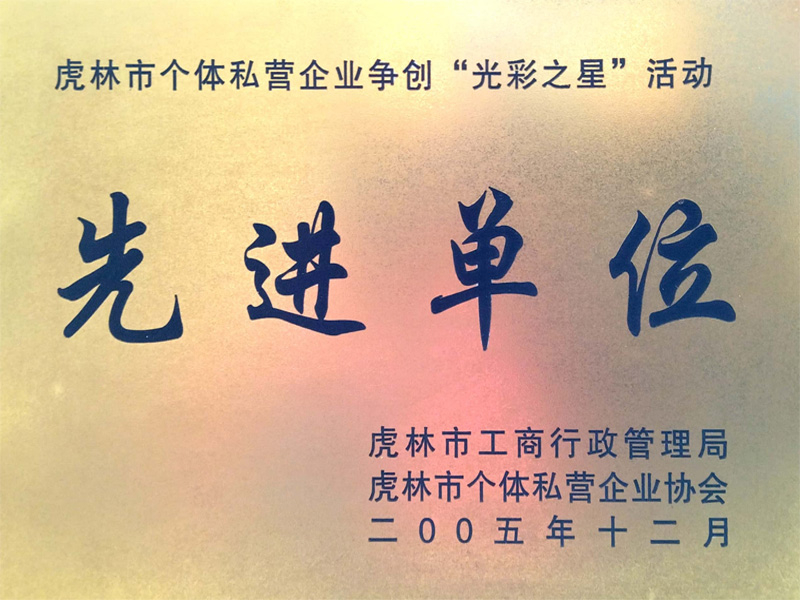 虎林市个体私营企业争创“光彩之星”活动
先进单位
虎林市工商行政管理局
虎林市个体私营企业协会
二00五年十二月